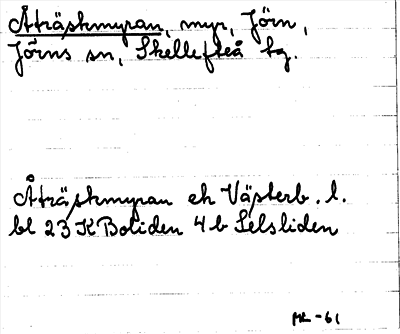 Åträskmyran, myr, Jörn,
Jörns sn, Skellefteå tg.
Åträskmyran ek Västerb. l.
bl 23 K Boliden 4 b Selsliden
ML -61